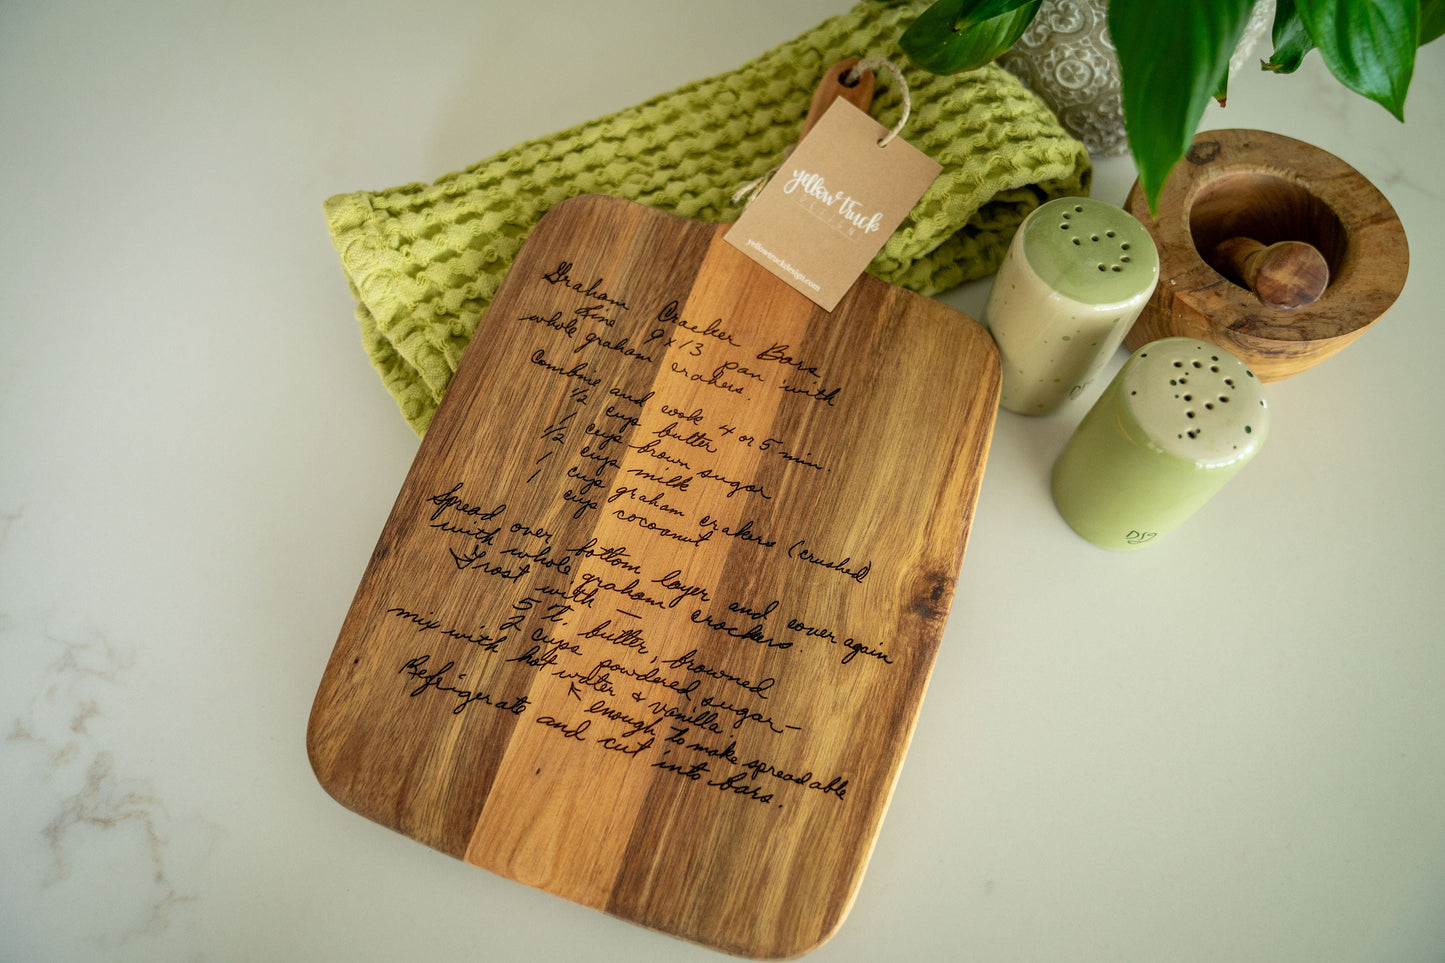 yellow truck
DESIGN
yellowtruckdesign.com
Graham Cracker Bars
Line 9 x 13 pan with
whole graham crakers.
Combine and cook 4 or 5 min.
1/2 cup butter
1 cup brown sugar
1/2 cup milk
1 cup graham crakers (crushed)
1 cup cocoanut
Spread over bottom layer and cover again
with whole graham crackers.
Frost with —
5 T. butter, browned
2 cups powdered sugar —
mix with hot water & vanilla.
enough to make spreadable
Refrigerate and cut into bars.